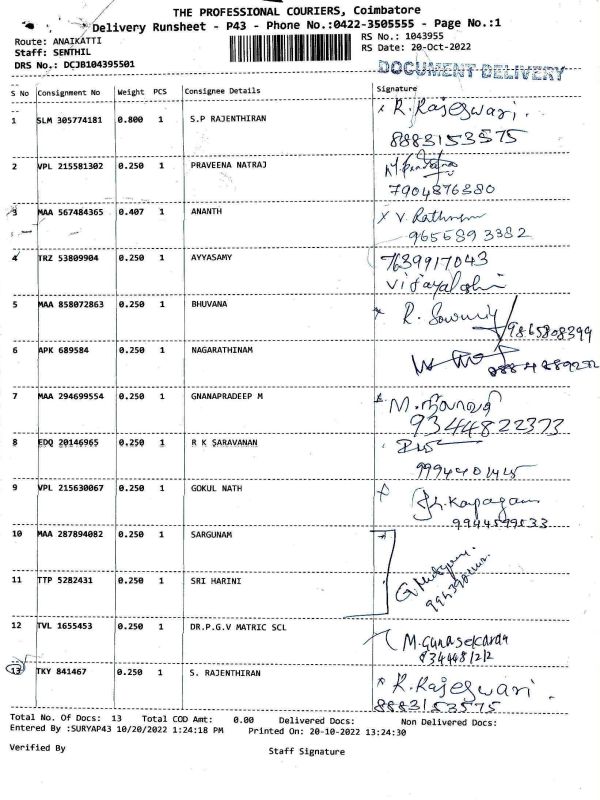 THE PROFESSIONAL COURIERS, Coimbatore
Delivery Runsheet - P43 - Phone No.:0422-3505555 - Page No.:1
Route: ANAIKATTI
RS No.: 1043955
Staff: SENTHIL
RS Date: 20-Oct-2022
DRS No.: DCJB104395501
DOCUMENT DELIVERY
S No Consignment No Weight PCS Consignee Details Signature
1 SLM 305774181 0.800 1 S.P RAJENTHIRAN R. Rajeswari.
8883153575
2 VPL 215581302 0.250 1 PRAVEENA NATRAJ
7904876380
3 MAA 567484365 0.407 1 ANANTH x V. Rathnam
9655893382
4 TRZ 53809904 0.250 1 AYYASAMY 7639917043
Vijayalakshmi
5 MAA 858072863 0.250 1 BHUVANA R.
9865808399
6 APK 689584 0.250 1 NAGARATHINAM
7 MAA 294699554 0.250 1 GNANAPRADEEP M
9344822373
8 EDQ 20146965 0.250 1 R K SARAVANAN
9 VPL 215630067 0.250 1 GOKUL NATH
10 MAA 287894082 0.250 1 SARGUNAM
11 TTP 5282431 0.250 1 SRI HARINI
12 TVL 1655453 0.250 1 DR.P.G.V MATRIC SCL
M. Gunasekaran
13 TKY 841467 0.250 1 S. RAJENTHIRAN x R. Rajeswari.
8883153575
Total No. Of Docs: 13 Total COD Amt: 0.00 Delivered Docs: Non Delivered Docs:
Entered By :SURYAP43 10/20/2022 1:24:18 PM Printed On: 20-10-2022 13:24:30
Verified By
Staff Signature